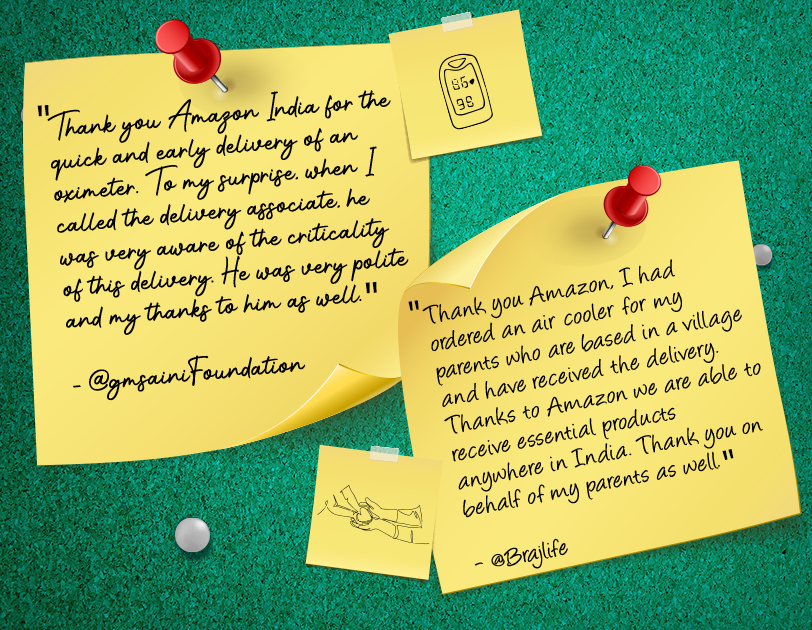 "Thank you Amazon India for the
quick and early delivery of an
oximeter. To my surprise, when I
called the delivery associate, he
was very aware of the criticality
of this delivery. He was very polite
and my thanks to him as well."
- @gmsainiFoundation
86
98
"Thank you Amazon, I had
ordered an air cooler for my
parents who are based in a village
and have received the delivery.
Thanks to Amazon we are able to
receive essential products
anywhere in India. Thank you on
behalf of my parents as well"
- @Brajlife